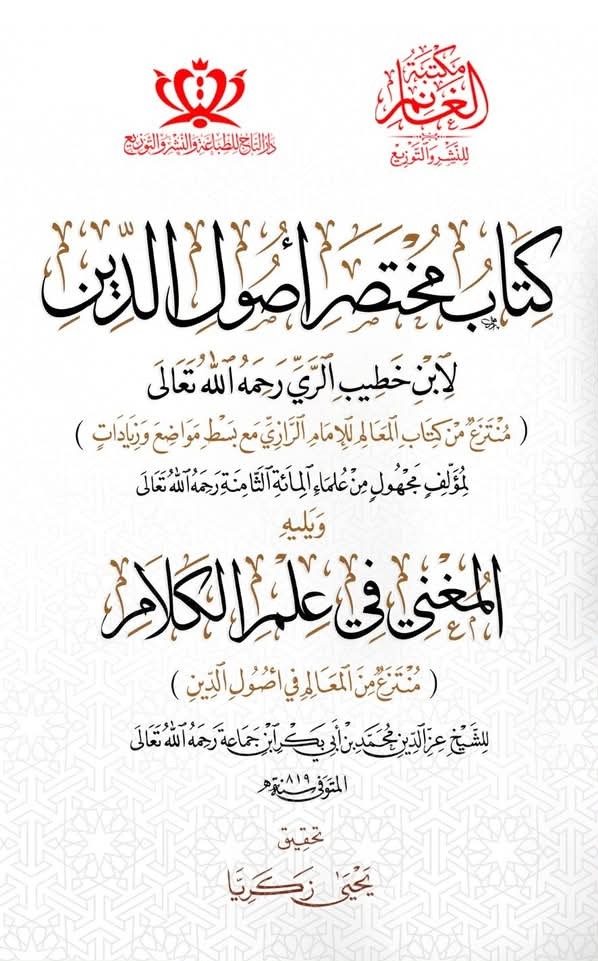 مَكتَبَة
الغَانِم
لِلنَّشْرِ وَالتَّوْزِيْعِ
دَارُ التَّاجِ لِلطِّبَاعَةِ وَالنَّشْرِ وَالتَّوْزِيْعِ
كِتَابُ مُخْتَصَرِ أُصُولِ الدِّينِ
لِابْنِ خَطِيبِ الرَّيِّ رَحِمَهُ اللهُ تَعَالَى
( مُنْتَزَعٌ مِنْ كِتَابِ المَعَالِمِ لِلإِمَامِ الرَّازِيِّ مَعَ بَسْطِ مَوَاضِعَ وَزِيَادَاتٍ )
لِمُؤَلِّفٍ مَجْهُولٍ مِنْ عُلَمَاءِ المِائَةِ الثَّامِنَةِ رَحِمَهُ اللهُ تَعَالَى
وَيَلِيهِ
المُغْنِي فِي عِلْمِ الكَلَامِ
( مُنْتَزَعٌ مِنَ المَعَالِمِ فِي أُصُولِ الدِّينِ )
لِلشَّيْخِ عِزِّ الدِّينِ مُحَمَّدِ بْنِ أَبِي بَكْرٍ ابْنِ جَمَاعَةَ رَحِمَهُ اللهُ تَعَالَى
المتوفى سنة ٨١٩ هـ
تحقيق
يَحْيَىٰ زَكَرِيَّا